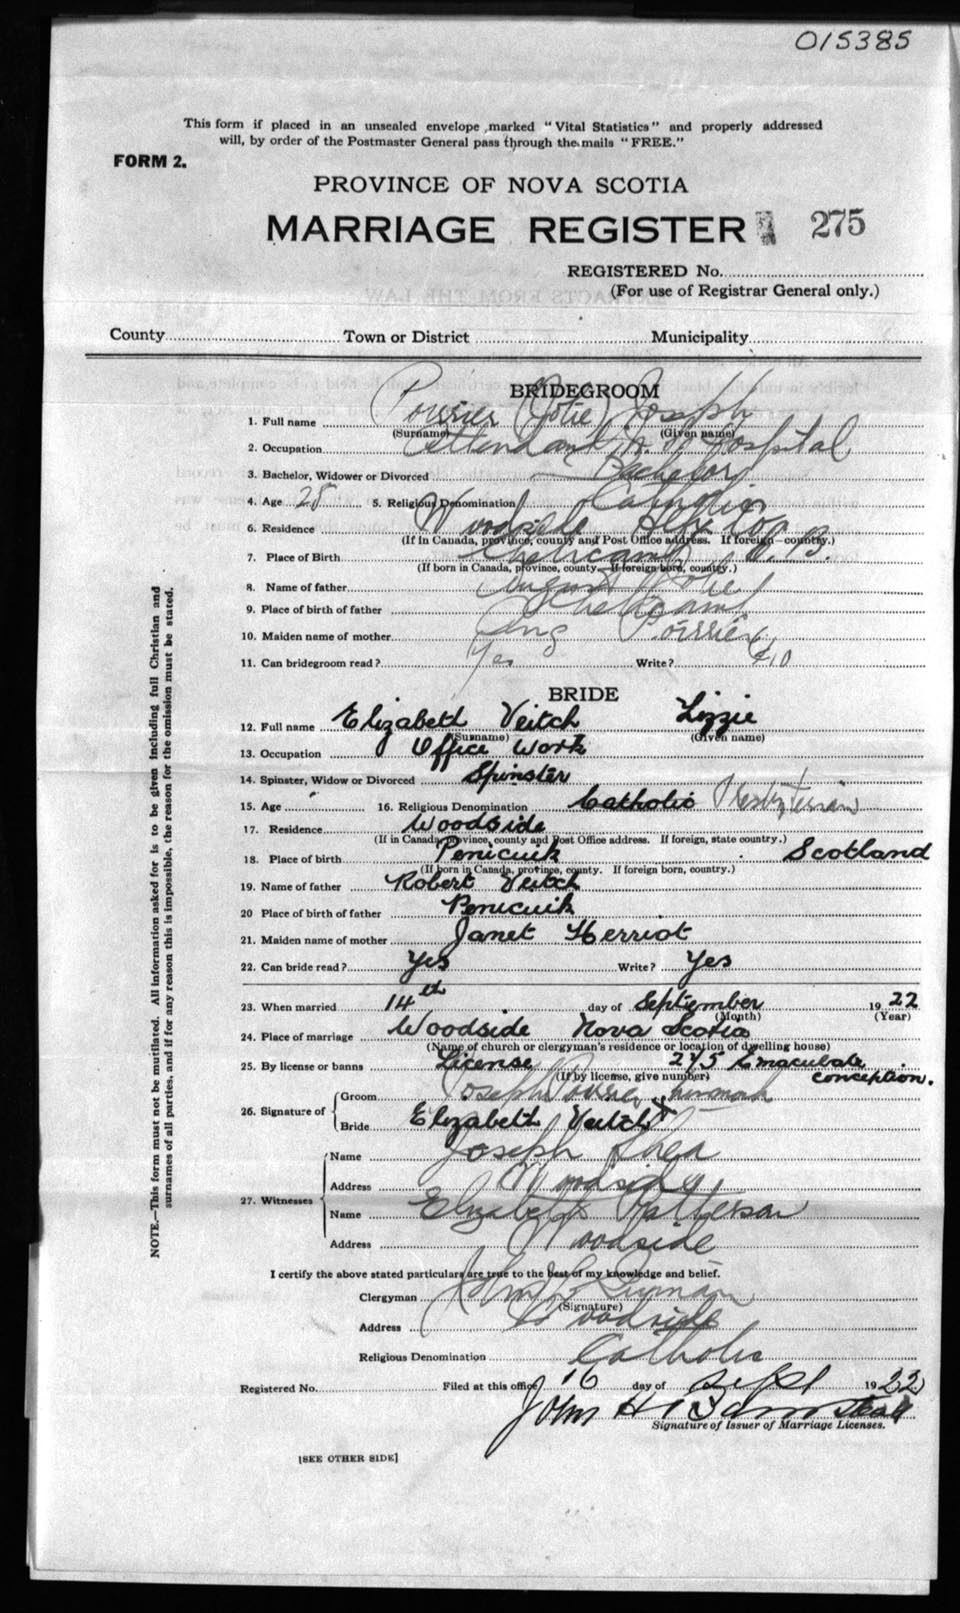 015385
This form if placed in an unsealed envelope marked "Vital Statistics" and properly addressed
will, by order of the Postmaster General pass through the mails "FREE."
FORM 2.
PROVINCE OF NOVA SCOTIA
MARRIAGE REGISTER 275
REGISTERED No.
(For use of Registrar General only.)
County Town or District Municipality
BRIDEGROOM
1. Full name Poirrier (Jotie) Joseph
(Surname) (Given name)
2. Occupation Attendant N. S. Hospital
3. Bachelor, Widower or Divorced Bachelor
4. Age 28 5. Religious Denomination Catholic
6. Residence Woodside Hfx Co
(If In Canada, province, county and Post Office address. If foreign—country.)
7. Place of Birth Cheticamp C. B.
(If born in Canada, province, county—If foreign born, country.)
8. Name of father August
9. Place of birth of father Cheticamp
10. Maiden name of mother Poirrier
11. Can bridegroom read? Yes Write? no
BRIDE
12. Full name Elizabeth Veitch Lizzie
(Surname) (Given name)
13. Occupation Office Work
14. Spinster, Widow or Divorced Spinster
15. Age 16. Religious Denomination Catholic Presbyterian
17. Residence Woodside
(If in Canada, province, county and Post Office address. If foreign, state country.)
18. Place of birth Penicuik Scotland
(If born in Canada, province, county. If foreign born, country.)
19. Name of father Robert Veitch
20 Place of birth of father Penicuik
21. Maiden name of mother Janet Herriot
22. Can bride read? Yes Write? Yes
23. When married 14th day of September 1922
(Month) (Year)
24. Place of marriage Woodside Nova Scotia
(Name of church or clergyman's residence or location of dwelling house)
25. By license or banns License 275 Emaculate
(If by license, give number) conception.
26. Signature of Groom Joseph his mark
Bride Elizabeth Veitch X
27. Witnesses Name Joseph Shea
Address Woodside
Name Elizabeth Patterson
Address Woodside
I certify the above stated particulars are true to the best of my knowledge and belief.
Clergyman John
(Signature)
Address Woodside
Religious Denomination Catholic
Registered No. Filed at this office 16 day of Sept 1922
John H
Signature of Issuer of Marriage Licenses.
[SEE OTHER SIDE]
NOTE.—This form must not be mutilated. All information asked for is to be given including full Christian and
surnames of all parties, and if for any reason this is impossible, the reason for the omission must be stated.